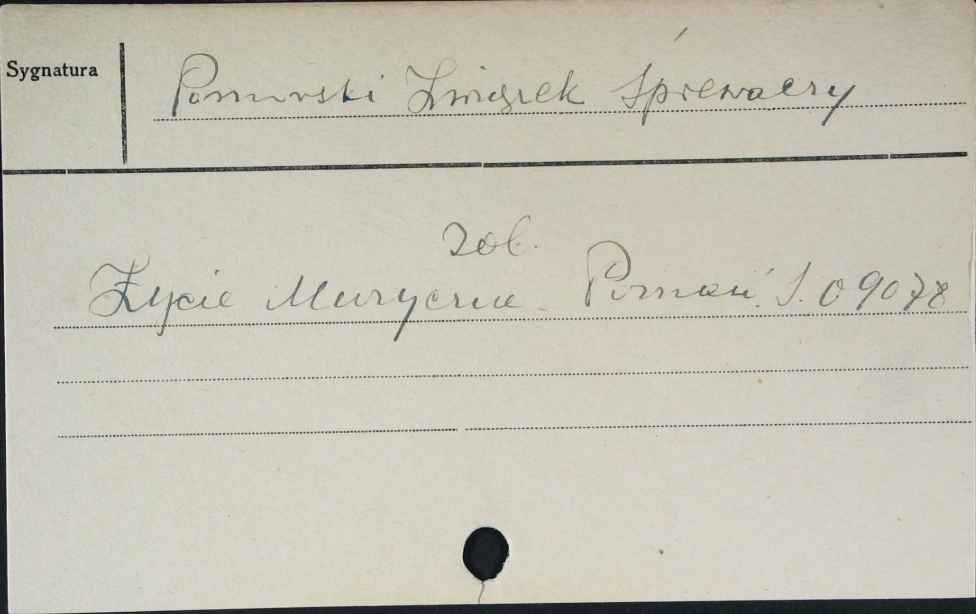 Sygnatura
Pomorski Związek Śpiewaczy
zob.
Życie Muzyczne. Poznań. S. 09078